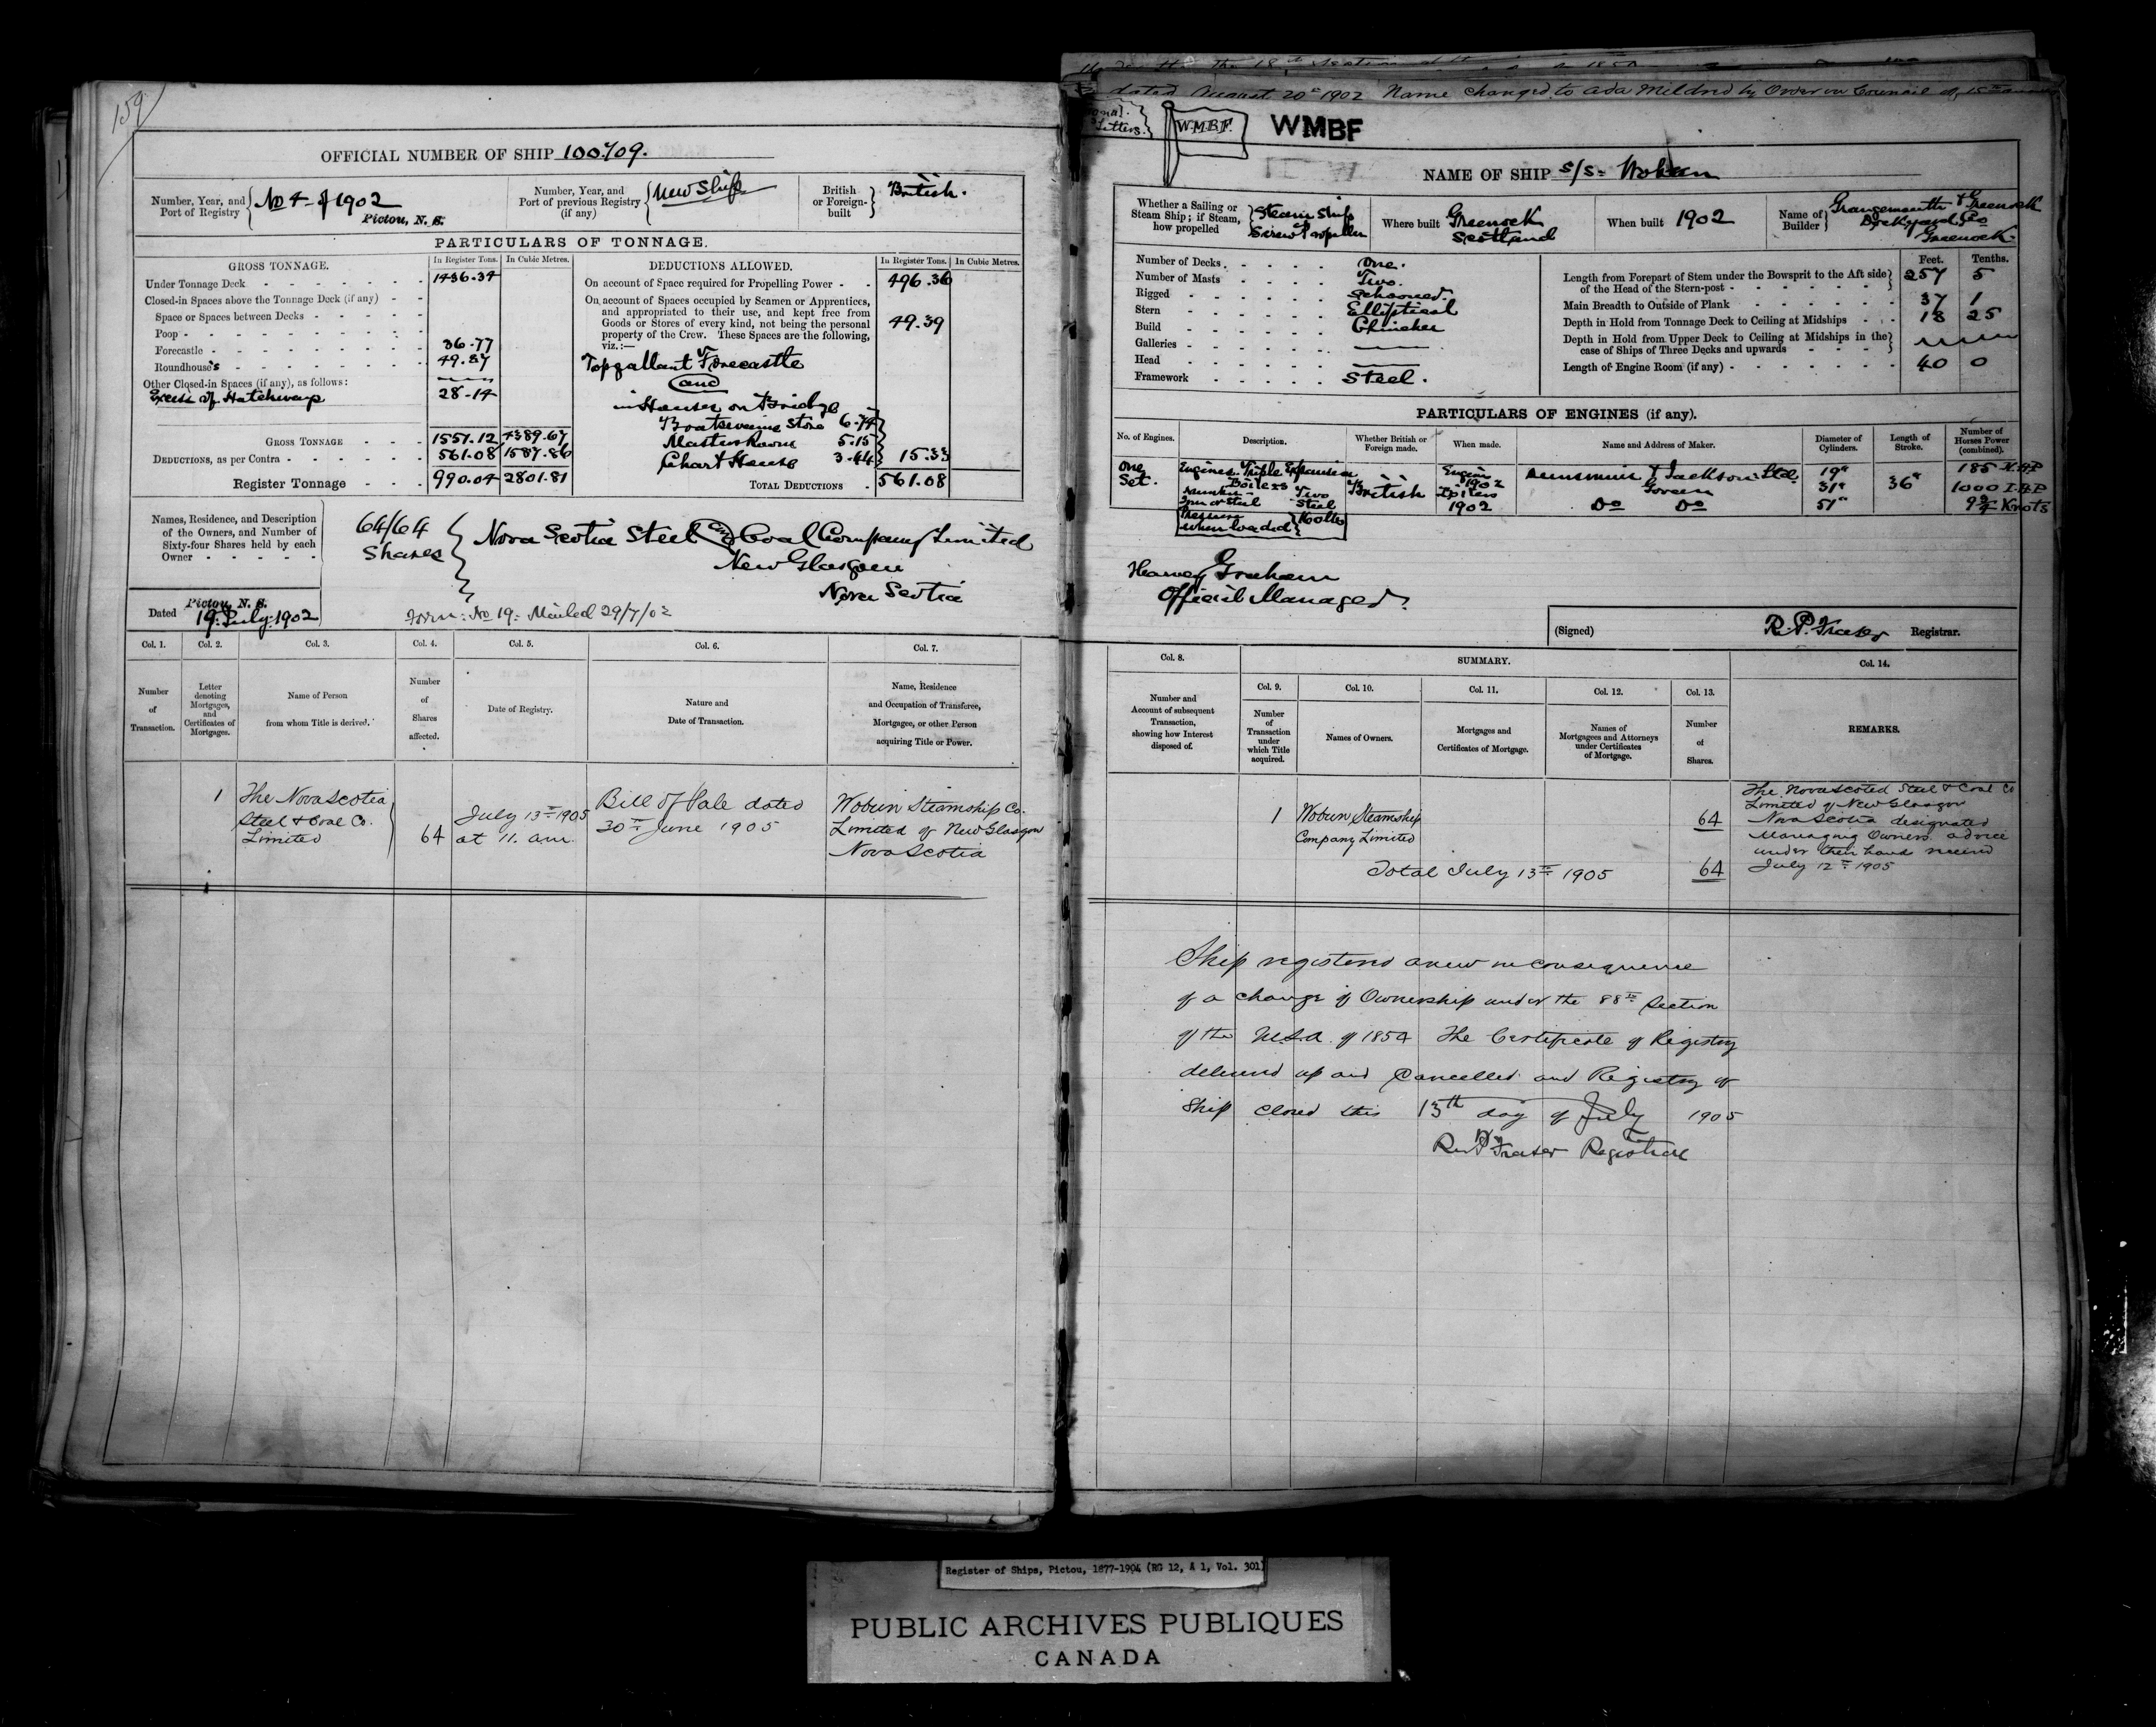 159
OFFICIAL NUMBER OF SHIP 100709.
Number, Year, and Port of Registry No 4 of 1902 Pictou, N. S.
Number, Year, and Port of previous Registry (if any) New Ship
British or Foreign-built British.
PARTICULARS OF TONNAGE.
GROSS TONNAGE. In Register Tons. In Cubic Metres.
Under Tonnage Deck 1436.34
Closed-in Spaces above the Tonnage Deck (if any)
Space or Spaces between Decks
Poop
Forecastle 36.77
Roundhouses 49.87
Other Closed-in Spaces (if any), as follows:
Excess of Hatchways 28.14
GROSS TONNAGE 1551.12 4389.67
DEDUCTIONS, as per Contra 561.08 1587.86
Register Tonnage 990.04 2801.81
DEDUCTIONS ALLOWED. In Register Tons. In Cubic Metres.
On account of Space required for Propelling Power 496.36
On account of Spaces occupied by Seamen or Apprentices,
and appropriated to their use, and kept free from
Goods or Stores of every kind, not being the personal
property of the Crew. These Spaces are the following,
viz.:— 49.39
Topgallant Forecastle
and
in Houses on Bridge
Boatswains Store 6.74
Masters Room 5.15
Chart House 3.44 15.33
TOTAL DEDUCTIONS 561.08
Names, Residence, and Description
of the Owners, and Number of
Sixty-four Shares held by each
Owner
64/64 Shares
Nova Scotia Steel and Coal Company Limited
New Glasgow
Nova Scotia
Dated Pictou, N. S. 19 July 1902
Form No 19 Mailed 29/7/02
Col. 1. Col. 2. Col. 3. Col. 4. Col. 5. Col. 6. Col. 7.
Number of Transaction.
Letter denoting Mortgages, and Certificates of Mortgages.
Name of Person from whom Title is derived.
Number of Shares affected.
Date of Registry.
Nature and Date of Transaction.
Name, Residence and Occupation of Transferee, Mortgagee, or other Person acquiring Title or Power.
1
The Nova Scotia
Steel & Coal Co.
Limited
64
July 13th 1905
at 11. am.
Bill of Sale dated
30th June 1905
Woburn Steamship Co.
Limited of New Glasgow
Nova Scotia
dated August 20th 1902 Name changed to Ada Mildred by Order in Council of 15th
Letters.
W.M.B.F.
WMBF
NAME OF SHIP S/S- Woburn
Whether a Sailing or Steam Ship; if Steam, how propelled Steam Ship Screw Propeller
Where built Greenock Scotland
When built 1902
Name of Builder Grangemouth & Greenock Dockyard Co Greenock.
Number of Decks One.
Number of Masts Two.
Rigged Schooner.
Stern Elliptical
Build Clincher
Galleries
Head
Framework Steel.
Feet. Tenths.
Length from Forepart of Stem under the Bowsprit to the Aft side of the Head of the Stern-post 257 5
Main Breadth to Outside of Plank 37 1
Depth in Hold from Tonnage Deck to Ceiling at Midships 18 25
Depth in Hold from Upper Deck to Ceiling at Midships in the case of Ships of Three Decks and upwards
Length of Engine Room (if any) 40 0
PARTICULARS OF ENGINES (if any).
No. of Engines. Description. Whether British or Foreign made. When made. Name and Address of Maker. Diameter of Cylinders. Length of Stroke. Number of Horses Power (combined).
One Set.
Engines. Triple Expansion
Boilers
Number Two
Iron or Steel Steel
Pressure when loaded 160 lbs
British
Engines 1902
Boilers 1902
Dunsmuir & Jackson Ltd.
Govan
Do Do
19" 31" 51"
36"
185 N.H.P
1000 I.H.P
9¾ Knots
Harvey Graham
Official Manager.
(Signed) R. P. Fraser Registrar.
SUMMARY.
Col. 8. Col. 9. Col. 10. Col. 11. Col. 12. Col. 13. Col. 14.
Number and Account of subsequent Transaction, showing how Interest disposed of.
Number of Transaction under which Title acquired.
Names of Owners.
Mortgages and Certificates of Mortgage.
Names of Mortgagees and Attorneys under Certificates of Mortgage.
Number of Shares.
REMARKS.
1
Woburn Steamship
Company Limited
64
Total July 13th 1905 64
The Nova Scotia Steel & Coal Co
Limited of New Glasgow
Nova Scotia designated
Managing Owners advice
under their hand received
July 12th 1905
Ship registered anew in consequence
of a change of Ownership under the 88th Section
of the M.S.A. of 1854 The Certificate of Registry
delivered up and Cancelled and Registry of
Ship closed this 13th day of July 1905
R P Fraser Registrar
Register of Ships, Pictou, 1877-1904 (RG 12, A 1, Vol. 301)
PUBLIC ARCHIVES PUBLIQUES
CANADA